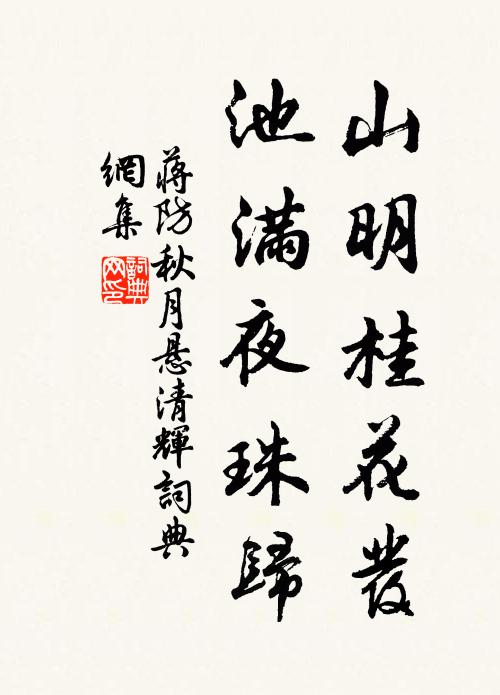 山明桂花發
池滿夜珠歸
蔣防秋月懸清輝詞典
網集
詞典
網印